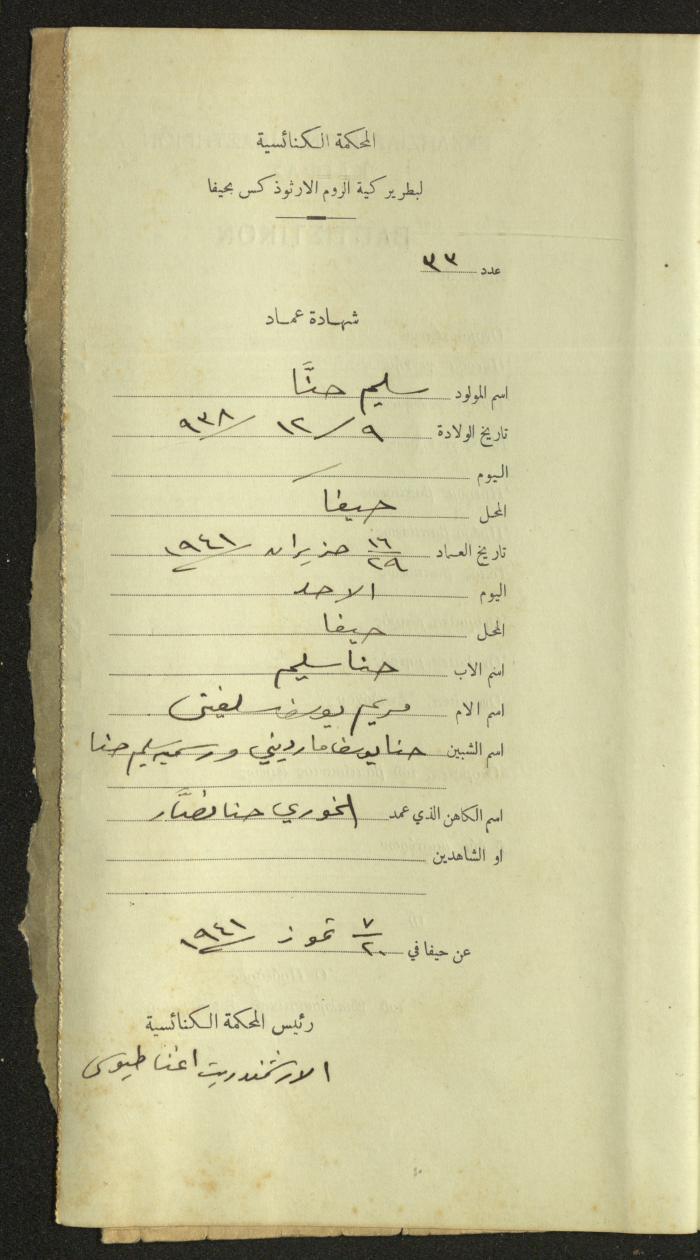 المحكمة الكنائسية
لبطريركية الروم الارثوذكس بحيفا
عدد ٣٣
شهادة عماد
اسم المولود سليم حنَّا
تاريخ الولادة ٩ / ١٢ / ٩٣٨
اليوم /
المحل حيفا
تاريخ العماد ١٦/٢٩ حزيران ١٩٤١
اليوم الاحد
المحل حيفا
اسم الاب حنا سليم
اسم الام مريم يوسف سلفيتي
اسم الشبين حنا يوسف مارديني ورسميه سليم حنا
اسم الكاهن الذي عمد الخوري حنا نصَّار
او الشاهدين
عن حيفا في ٧/٢٠ تموز ١٩٤١
رئيس المحكمة الكنائسية
الارشمندريت اغناطيوس